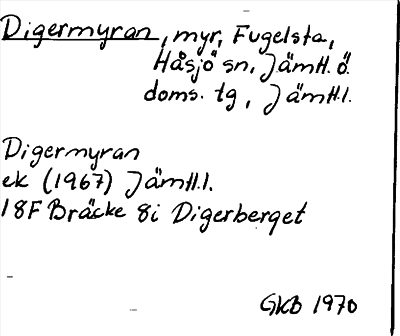 Digermyran, myr, Fugelsta,
Håsjö sn, Jämtl. ö.
doms. tg, Jämtl.l.
Digermyran
ek (1967) Jämtl.l.
18F Bräcke 8i Digerberget
GKB 1970